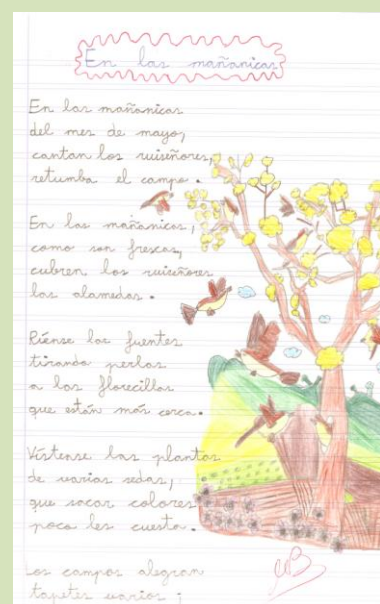 En las mañanicas
En las mañanicas
del mes de mayo,
cantan los ruiseñores,
retumba el campo.
En las mañanicas,
como son frescas,
cubren los ruiseñores
las alamedas.
Ríense las fuentes
tirando perlas
a las florecillas
que están más cerca.
Vístense las plantas
de varias sedas,
que sacar colores
poco les cuesta.
Los campos alegran
tapetes varios;